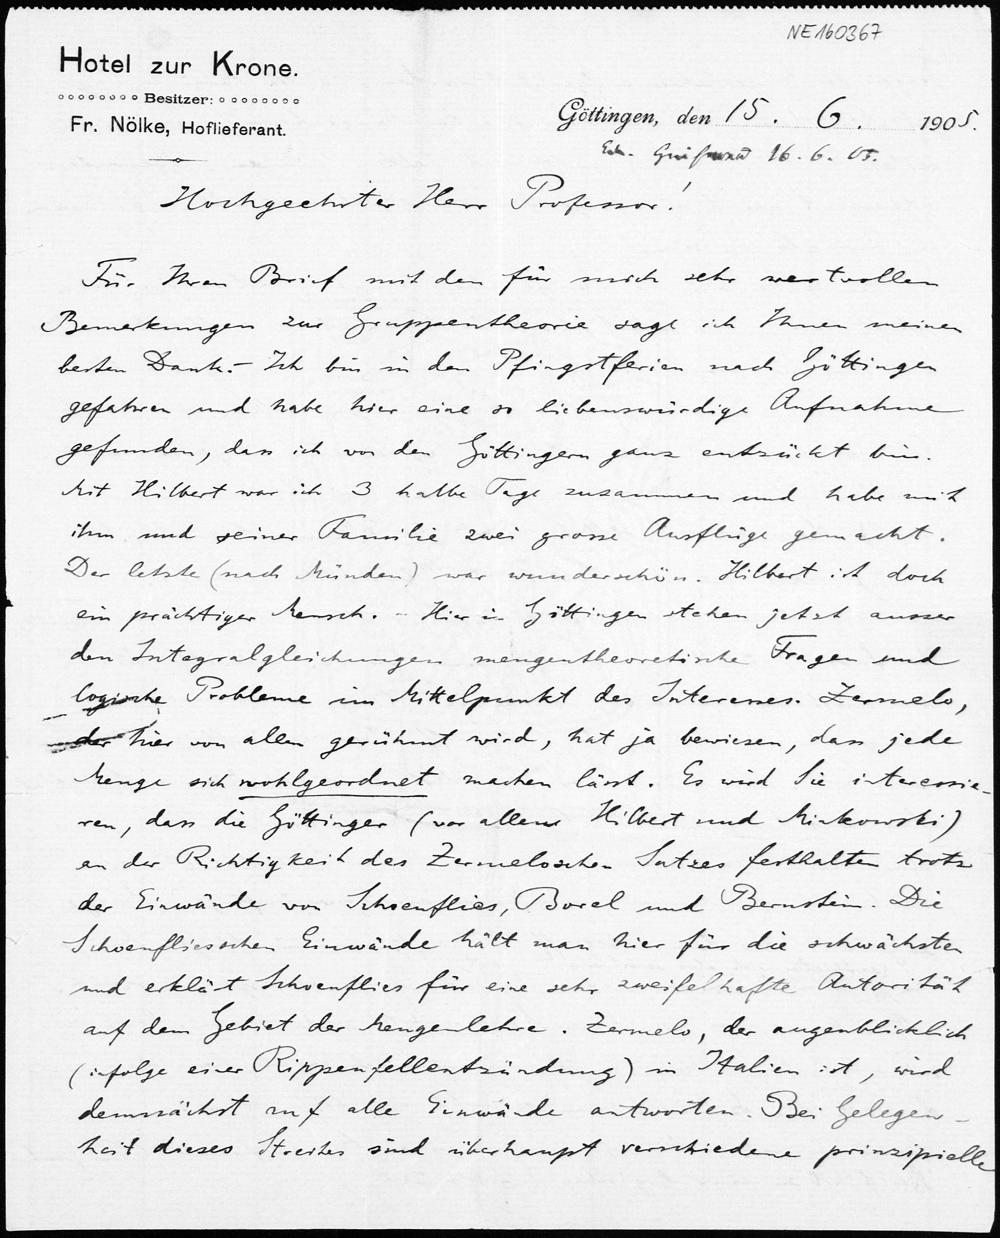 NE160367
Hotel zur Krone.
Besitzer:
Fr. Nölke, Hoflieferant.
Göttingen, den 15. 6. 1905.
16. 6. 05.
Hochgeehrter Herr Professor!
Für Ihren Brief mit den für mich sehr wertvollen
Bemerkungen zur Gruppentheorie sage ich Ihnen meinen
besten Dank. – Ich bin in den Pfingstferien nach Göttingen
gefahren und habe hier eine so liebenswürdige Aufnahme
gefunden, dass ich von den Göttingern ganz entzückt bin.
Mit Hilbert war ich 3 halbe Tage zusammen und habe mit
ihm und seiner Familie zwei grosse Ausflüge gemacht.
Der letzte (nach Münden) war wunderschön. Hilbert ist doch
ein prächtiger Mensch. – Hier in Göttingen stehen jetzt ausser
den Integralgleichungen mengentheoretische Fragen und
logische Probleme im Mittelpunkt des Interesses. Zermelo,
der hier von allen gerühmt wird, hat ja bewiesen, dass jede
Menge sich wohlgeordnet machen lässt. Es wird Sie interessie-
ren, dass die Göttinger (vor allem Hilbert und Minkowski)
an der Richtigkeit des Zermeloschen Satzes festhalten trotz
der Einwände von Schoenflies, Borel und Bernstein. Die
Schoenfliesschen Einwände hält man hier für die schwächsten
und erklärt Schoenflies für eine sehr zweifelhafte Autorität
auf dem Gebiet der Mengenlehre. Zermelo, der augenblicklich
(infolge einer Rippenfellentzündung) in Italien ist, wird
demnächst auf alle Einwände antworten. Bei Gelegen-
heit dieses Streites sind überhaupt verschiedene prinzipielle